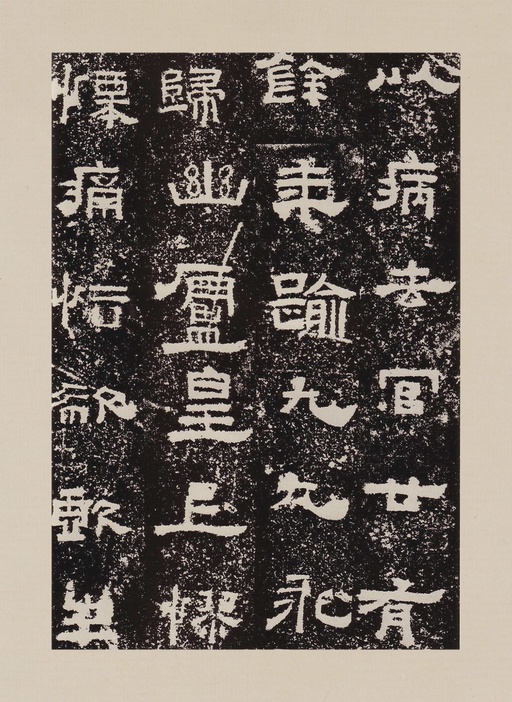 以病去官廿有
餘踰九九永
歸幽廬皇上憀
慄痛欷歔